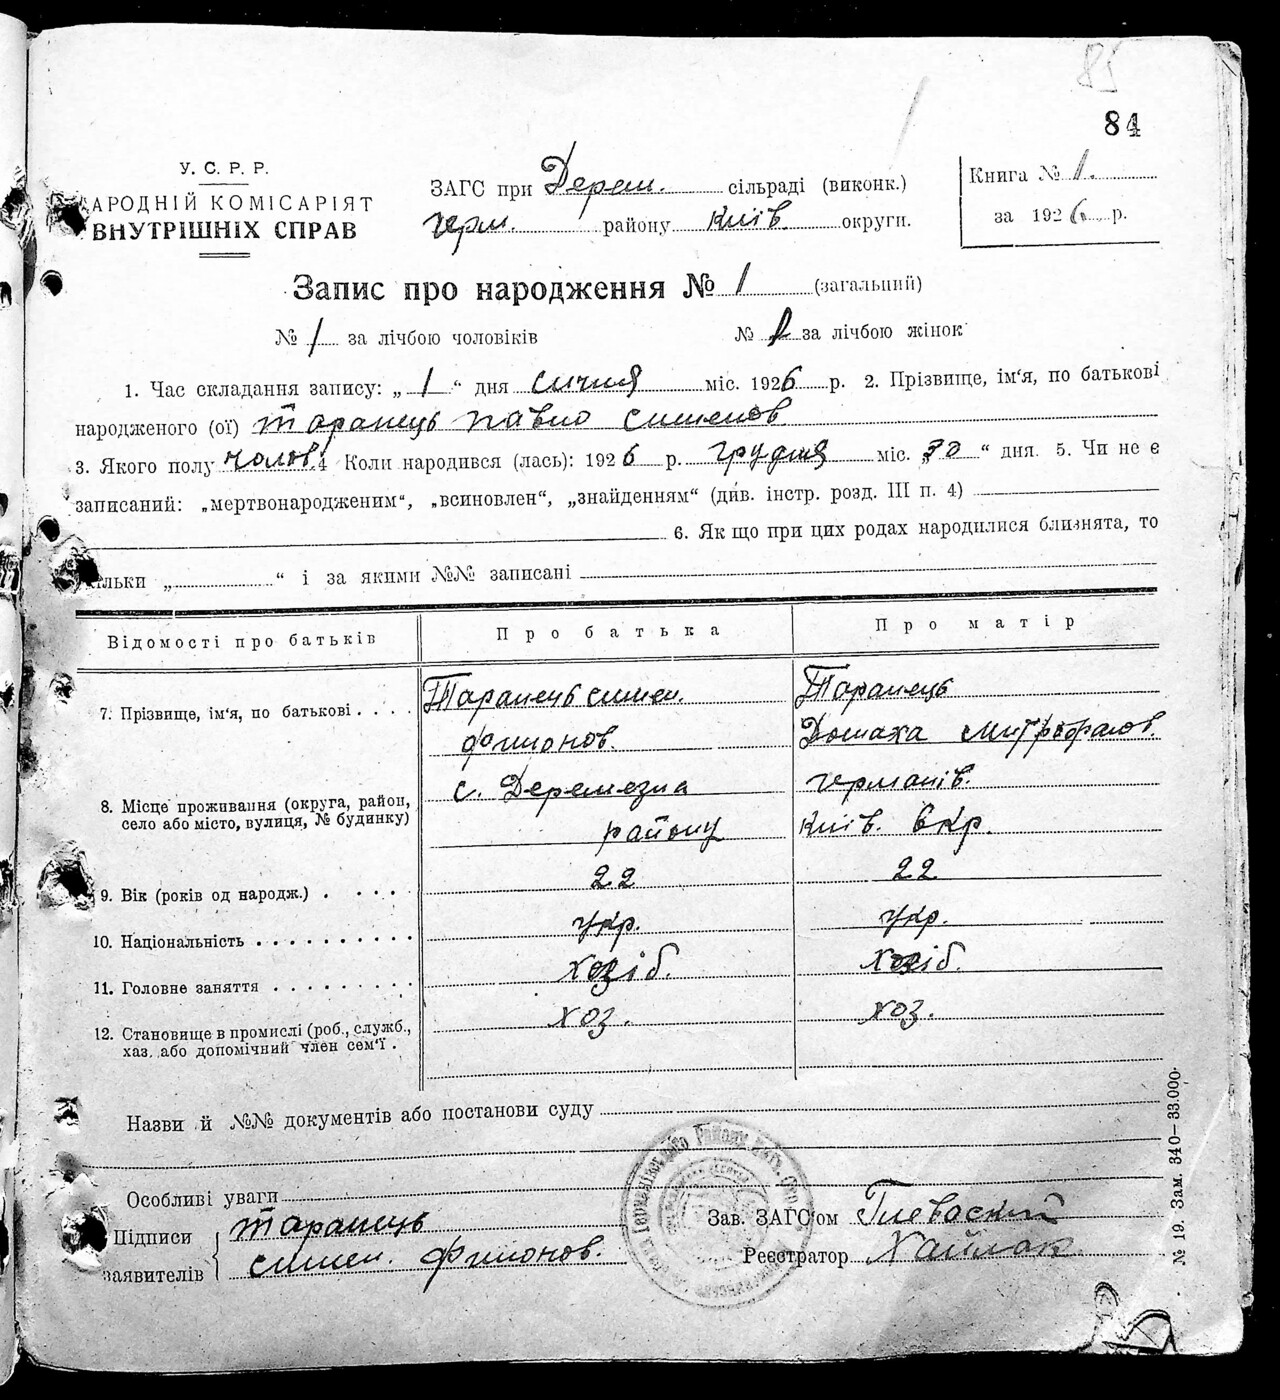 85
84
У. С. Р. Р.
АРОДНІЙ КОМІСАРІЯТ
ВНУТРІШНІХ СПРАВ
ЗАГС при Дерем. сільраді (виконк.)
герм. району Київ. округи.
Книга № 1.
за 1926 р.
Запис про народження № 1 (загальний)
№ 1 за лічбою чоловіків № за лічбою жінок
1. Час складання запису: „ 1 “ дня січня міс. 1926 р. 2. Прізвище, ім‘я, по батькові
народженого (ої) Таранець Павло Симонов
3. Якого полу чолов. 4 Коли народився (лась): 1926 р. грудня міс. „30“ дня. 5. Чи не є
записаний: „мертвонародженим“, „всиновлен“, „знайденням“ (див. інстр. розд. III п. 4)
6. Як що при цих родах народилися близнята, то
кільки „ “ і за якими №№ записані
Відомості про батьків Про батька Про матір
7. Прізвище, ім‘я, по батькові . . . . Таранець Симон. Таранець
Филонов. Домаха Митрофанов.
8. Місце проживання (округа, район, с. Деремезна германів.
село або місто, вулиця, № будинку) району Київ. Вкр.
9. Вік (років од народж.) . . . . . 22 22
10. Національність . . . . . . . . . . укр. укр.
11. Головне заняття . . . . . . . . . хозіб. хозіб.
12. Становище в промислі (роб., служб., хоз. хоз.
хаз. або допомічний член сем‘ї .
Назви й №№ документів або постанови суду
Особливі уваги
Підписи Таранець
заявителів Симон. Филонов.
Зав. ЗАГС‘ом Глеваский
Реєстратор Хайлак
№ 19. Зам. 340—33.000.